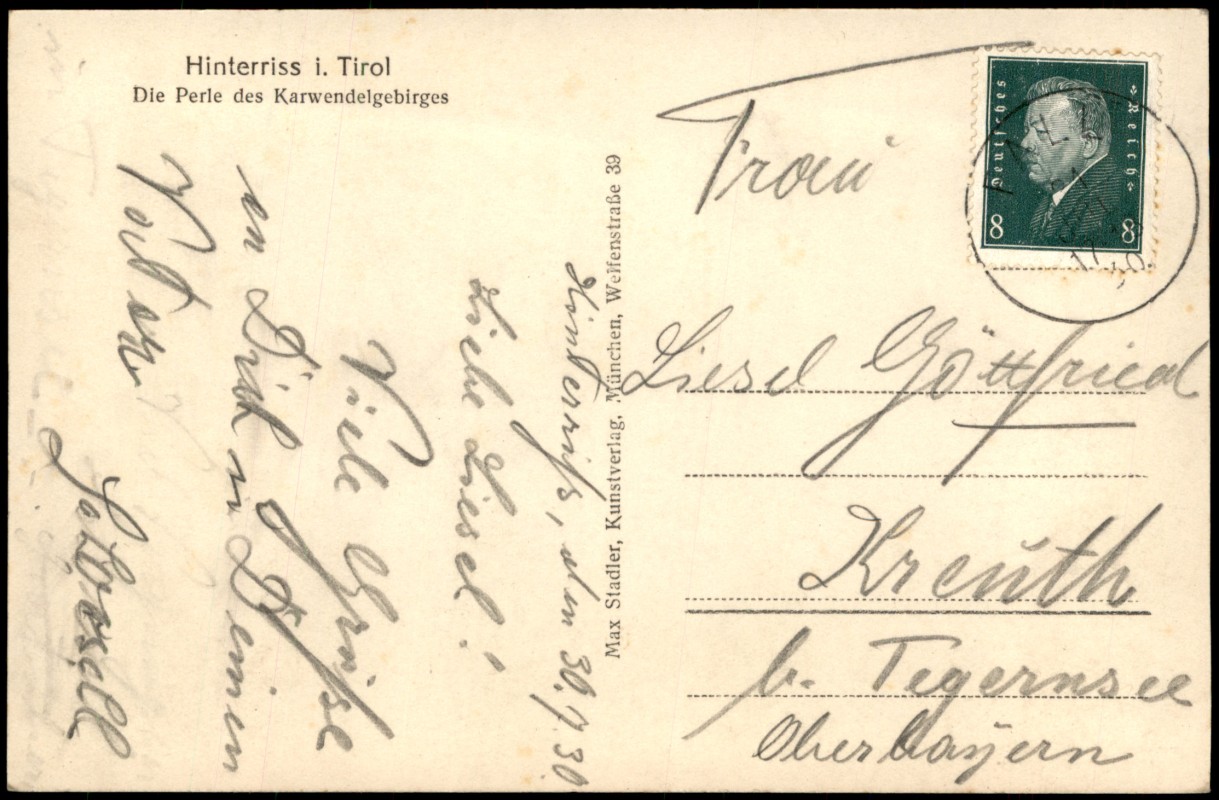 Hinterriss i. Tirol
Die Perle des Karwendelgebirges
Hinterriß, den 30.7.30.
Liebe Liesel!
Viele Grüsse
an Dich u. Deinen
Max Stadler, Kunstverlag, München, Welfenstraße 39
Deutsches Reich
8 8
Frau
Liesel Göttfried
Kreuth
b. Tegernsee
Oberbayern